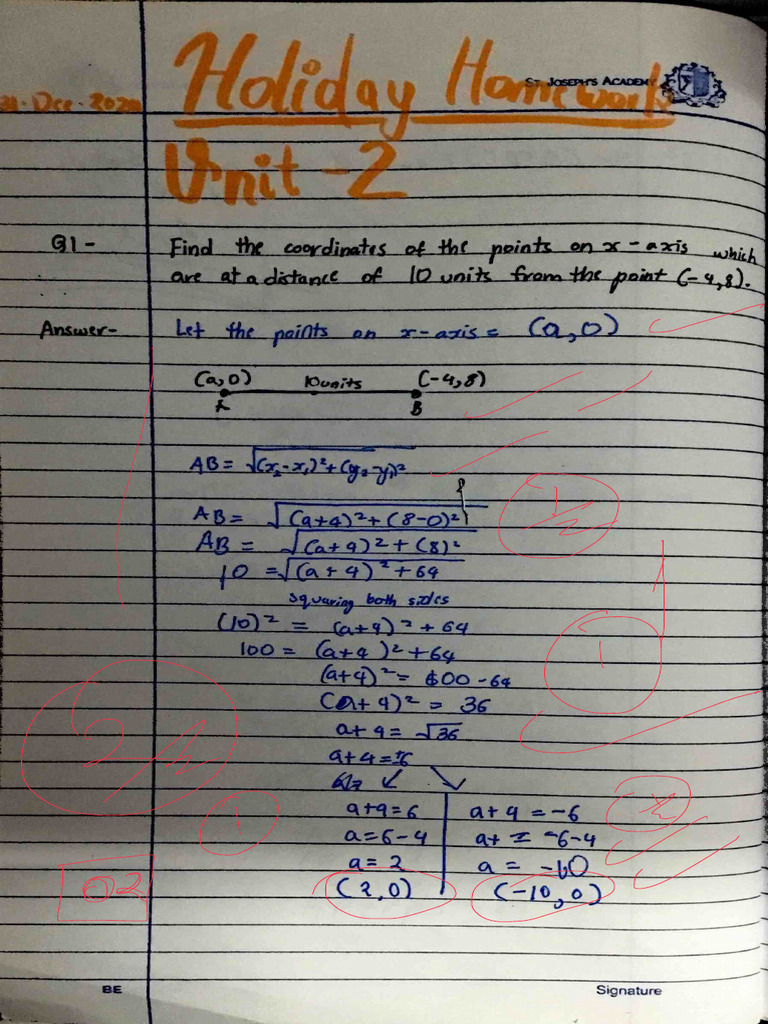 Holiday Homework
ST. JOSEPH'S ACADEMY
Dec. 2020
Unit-2
Q1- Find the coordinates of the points on x-axis which
are at a distance of 10 units from the point (-4,8).
Answer- Let the points on x-axis = (a,0)
(a,0) 10 units (-4,8)
A B
AB = √(x₂-x₁)²+(y₂-y₁)²
AB = √(a+4)²+(8-0)²
1/2
AB = √(a+4)²+(8)²
10 = √(a+4)²+64
squaring both sides
(10)² = (a+4)²+64
100 = (a+4)²+64
1
(a+4)² = 100-64
(a+4)² = 36
a+4 = √36
2 1/2
a+4 = ±6
a+4=6 a+4 = -6
1
a=6-4 a+ = -6-4
a=2 a = -10
02
(2,0) (-10,0)
BE Signature